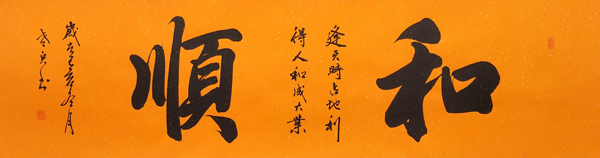 和
逢天時占地利
得人和成大業
順
歲在己亥冬月